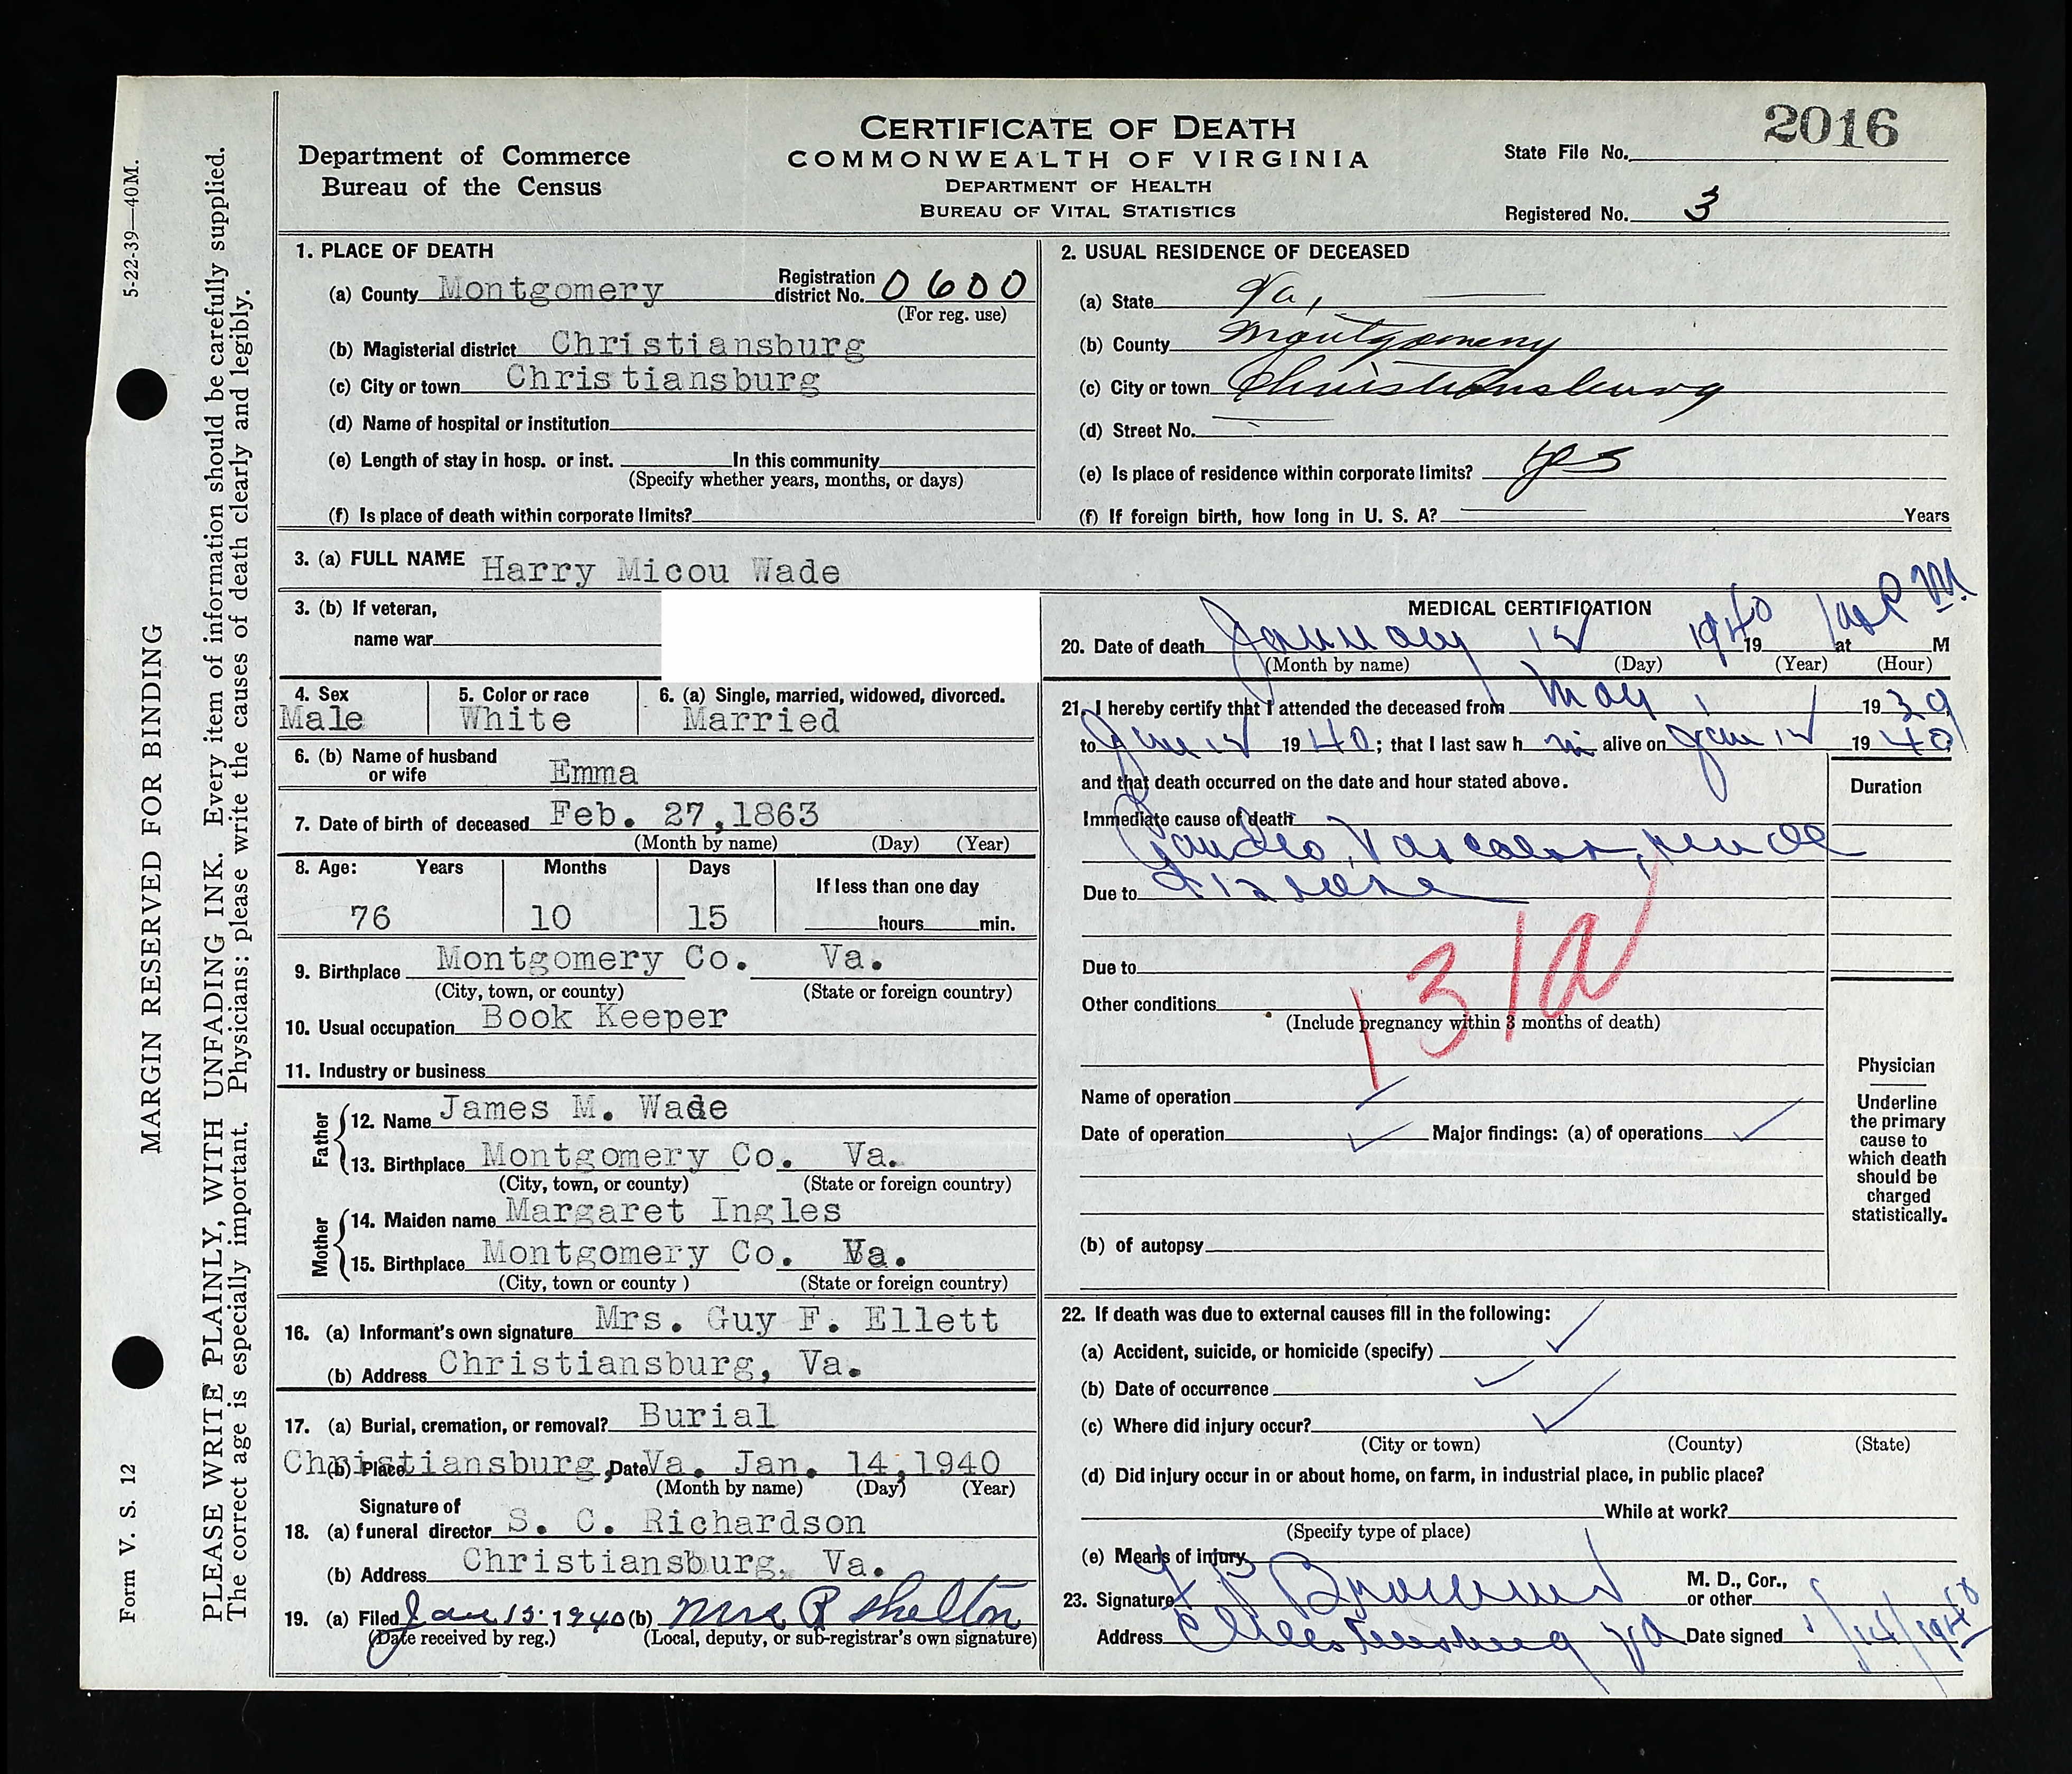 2016
CERTIFICATE OF DEATH
COMMONWEALTH OF VIRGINIA
DEPARTMENT OF HEALTH
BUREAU OF VITAL STATISTICS
Department of Commerce
Bureau of the Census
State File No.
Registered No. 3
5-22-39—40M.
MARGIN RESERVED FOR BINDING
Form V. S. 12
PLEASE WRITE PLAINLY, WITH UNFADING INK. Every item of information should be carefully supplied.
The correct age is especially important. Physicians: please write the causes of death clearly and legibly.
1. PLACE OF DEATH
(a) County Montgomery Registration district No. 0600
(For reg. use)
(b) Magisterial district Christiansburg
(c) City or town Christiansburg
(d) Name of hospital or institution
(e) Length of stay in hosp. or inst. In this community
(Specify whether years, months, or days)
(f) Is place of death within corporate limits?
2. USUAL RESIDENCE OF DECEASED
(a) State Va,
(b) County Montgomery
(c) City or town Christiansburg
(d) Street No.
(e) Is place of residence within corporate limits? yes
(f) If foreign birth, how long in U. S. A? Years
3. (a) FULL NAME Harry Micou Wade
3. (b) If veteran,
name war
4. Sex 5. Color or race 6. (a) Single, married, widowed, divorced.
Male White Married
6. (b) Name of husband
or wife Emma
7. Date of birth of deceased Feb. 27,1863
(Month by name) (Day) (Year)
8. Age: Years Months Days If less than one day
76 10 15 hours min.
9. Birthplace Montgomery Co. Va.
(City, town, or county) (State or foreign country)
10. Usual occupation Book Keeper
11. Industry or business
Father
12. Name James M. Wade
13. Birthplace Montgomery Co. Va.
(City, town, or county) (State or foreign country)
Mother
14. Maiden name Margaret Ingles
15. Birthplace Montgomery Co. Va.
(City, town or county ) (State or foreign country)
16. (a) Informant's own signature Mrs. Guy F. Ellett
(b) Address Christiansburg, Va.
17. (a) Burial, cremation, or removal? Burial
(b) Place Christiansburg, Va. Date Jan. 14,1940
(Month by name) (Day) (Year)
Signature of
18. (a) funeral director S. C. Richardson
(b) Address Christiansburg, Va.
19. (a) Filed Jan 15. 1940 (b) Mrs R Shelton
(Date received by reg.) (Local, deputy, or sub-registrar's own signature)
MEDICAL CERTIFICATION
20. Date of death January 12 1940 19 at P M. M
(Month by name) (Day) (Year) (Hour)
21. I hereby certify that I attended the deceased from May 1 1939
to Jan 12 1940; that I last saw him alive on Jan 12 1940
and that death occurred on the date and hour stated above.
Duration
Immediate cause of death
Cardio, Vascular, renal
Due to disease
Due to
131a
Other conditions
(Include pregnancy within 3 months of death)
Name of operation
Date of operation Major findings: (a) of operations
(b) of autopsy
Physician
Underline
the primary
cause to
which death
should be
charged
statistically.
22. If death was due to external causes fill in the following:
(a) Accident, suicide, or homicide (specify)
(b) Date of occurrence
(c) Where did injury occur?
(City or town) (County) (State)
(d) Did injury occur in or about home, on farm, in industrial place, in public place?
While at work?
(Specify type of place)
(e) Means of injury
23. Signature M. D., Cor.,
or other
Address Christiansburg Va Date signed 1/14/1940